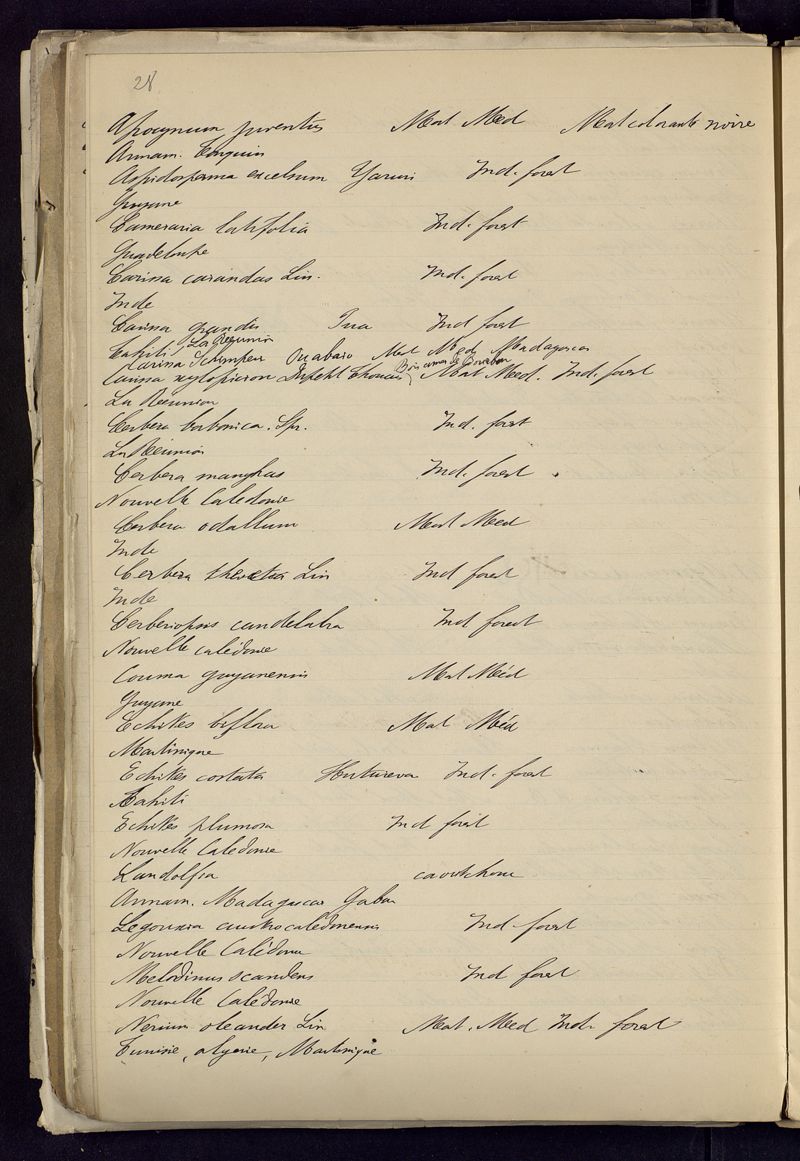 28
Apocynum juventas Mat Med Mat colorante noire
Annam. Tonquin
Aspidosperma excelsum Yaruri Ind. forest
Guyane
Cameraria latifolia Ind. forest
Guadeloupe
Carissa carandas Lin. Ind. forest
Inde
Carissa grandis Ind forest
Tahiti La Réunion
Carissa Schimperi Ouabaio Mat Med Madagascar
Carissa xylopicron Dupetit Thouars Bois amer de Bourbon Mat Med. Ind. forest
La Réunion
Cerbera borbonica. Spr. Ind. forest
La Réunion
Cerbera manghas Ind. forest.
Nouvelle Calédonie
Cerbera odallum Mat Med
Inde
Cerbera thevetia Lin Ind forest
Inde
Cerberiopsis candelabra Ind forest
Nouvelle Calédonie
Couma guyanensis Mat Méd
Guyane
Echites biflora Mat Méd
Martinique
Echites costata Hutureva Ind. forest
Tahiti
Echites plumosa Ind forest
Nouvelle Calédonie
Landolfia caoutchouc
Annam. Madagascar Gabon
Legouxia austrocaledonensis Ind forest
Nouvelle Calédonie
Melodinus scandens Ind forest
Nouvelle Calédonie
Nerium oleander Lin Mat. Med Ind. forest
Tunisie, algerie, Martinique